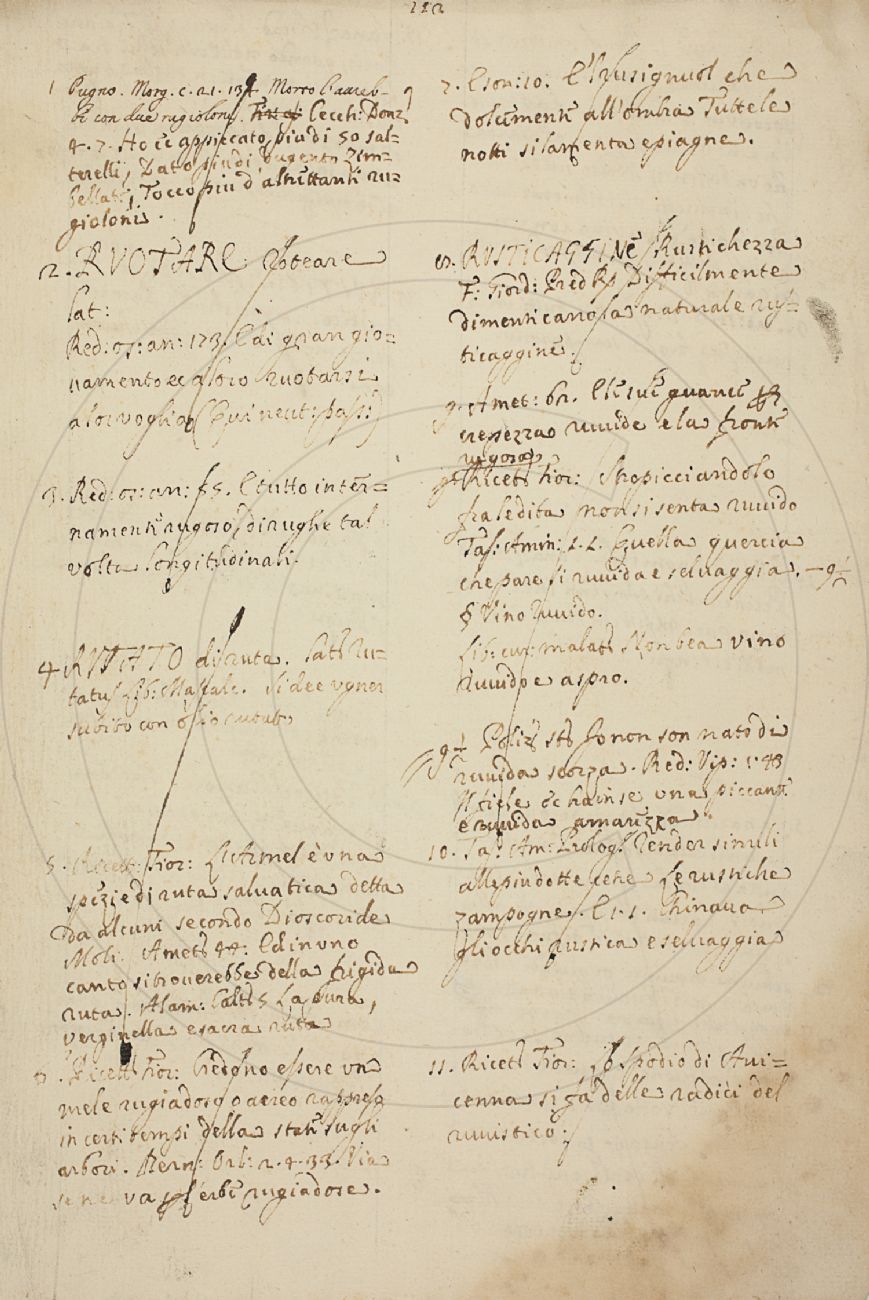 112
1 Pugno. Morg. c. 21. 134 Morto l'aareb-
be con due rugioloni. Cecch: Donz:
4. 7. Ho ci appiccato piu di 50 sal=
terelli, Dato piu di dugento Zim=
bellate, Tocco piu d'altrettanti ru=
gioloni.
2. RVOTARE Roteare
Lat:
Red: os: an: 173. E di gran gio=
vamento ruotarsi
a lor voglia (Qui neut: pass:)
3. Red: os: an: 55. E tutto inter=
namente rugoso, di rughe tal
volta longitudinali.
4 RVTATO di ruta. Lat: Ru=
tatus Lib: Mascalc. Si dee ugner
subito con olio rutato
5. Ricett: Fior: L'Armel è una
spezie di ruta salvatica detta
da alcuni secondo Dioscoride
Moli. Amet: 44: Ed in uno
canto si troverebbe della frigida
ruta. Alam: Colt: 5 La pura,
verginella e sacra ruta
6. Ricett: Fior: Credono essere un
mele rugiadoso o aereo rappreso
in certi tempi della state sugli
arbori. Bern: Orl: 2. 4. 33. Via
se ne va per l'erbe rugiadose.
7. E son: 10. E'l Rusignuol che
dolcemente all'ombra Tutte le
notti si lamenta e piagne.
8. RUSTICAGGINE Rustichezza
F: Giord: Pred R: Difficilmente
dimenticano la naturale rus=
ticaggine.
9. Amet: 62. E le sue guance per
crespezza ruvide e la fronte
rugosa
9. Ricett: Fior: Stropicciandolo
fra le dita non si senta ruvido
Tas: Amin: 1. 2. Quella quercia
che pare si ruvida e selvaggia. — 9 1/2
§ Vino Ruvido.
Lib: cur: malatt: Non bea vino
Ruvido e aspro.
9 1/2 Poliz: st: Io non son nato di
ruvida scorza. Red: Vip: 1. 48
Il fiele ha in se una piccante
e ruvida amarezza
10. Tas: Am: Prolog: Render simili
alle piu dotte cetre le rustiche
zampogne. E 1. 1. Chinava
gli occhi rustica e selvaggia
11. Ricett: Fior: Lo Spodio di Avi=
cenna si fa delle radici del
ruvistico.